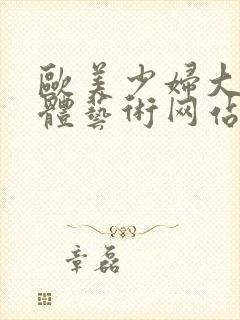 歐美少婦大
體藝術网佔
章磊